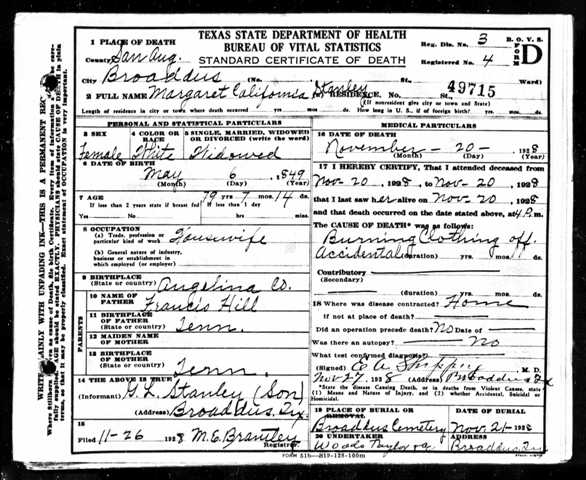 TEXAS STATE DEPARTMENT OF HEALTH
BUREAU OF VITAL STATISTICS
STANDARD CERTIFICATE OF DEATH
Reg. Dis. No. 3
B. O. V. S.
FORM D
Registered No. 4
49715
1 PLACE OF DEATH
County San Aug.
City Broaddus (No. St. Ward)
2 FULL NAME Margaret California Stanley RESIDENCE. No. St.
(If nonresident give city or town and State)
Length of residence in city or town where death occurred yrs. mos. ds. How long in U. S., if of foreign birth? yrs. mos. ds.
PERSONAL AND STATISTICAL PARTICULARS
3 SEX
Female
4 COLOR OR RACE
White
5 SINGLE, MARRIED, WIDOWED OR DIVORCED (write the word)
Widowed
6 DATE OF BIRTH
May 6 1849
(Month) (Day) (Year)
7 AGE 79 yrs 7 mos. 14 ds.
If less than 2 years state if breast fed If less than 1 day
Yes No hrs. min.
8 OCCUPATION
(a) Trade, profession or particular kind of work Housewife
(b) General nature of industry, business or establishment in which employed (or employer)
9 BIRTHPLACE
(State or country) Angelina Co.
PARENTS
10 NAME OF FATHER Francis Hill
11 BIRTHPLACE OF FATHER
(State or country) Tenn.
12 MAIDEN NAME OF MOTHER
13 BIRTHPLACE OF MOTHER
(State or country) Tenn.
14 THE ABOVE IS TRUE
(Informant) G. L. Stanley (Son)
(Address) Broaddus, Tex.
15
Filed 11-26 1928 M. C. Brantley
Registrar.
MEDICAL PARTICULARS
16 DATE OF DEATH
November - 20 - 1928
(Month) (Day) (Year)
17 I HEREBY CERTIFY, That I attended deceased
from Nov-20 1928, to Nov-20 1928
that I last saw her alive on Nov. 20 1928
and that death occurred on the date stated above, at 4 P.m.
The CAUSE OF DEATH* was as follows:
Burning Clothing off.
Accidental (duration) yrs. mos. ds.
Contributory
(Secondary)
(duration) yrs. mos. ds.
18 Where was disease contracted? Home
If not at place of death?
Did an operation precede death? No Date of
Was there an autopsy? No
What test confirmed diagnosis?
(Signed) M. D.
Nov 27, 1928 (Address) Broaddus Tex
*State the disease Causing Death, or in deaths from Violent Causes, state (1) Means and Nature of Injury, and (2) whether Accidental, Suicidal or Homicidal.
19 PLACE OF BURIAL OR REMOVAL
Broaddus Cemetery
DATE OF BURIAL
Nov. 21- 1928
20 UNDERTAKER
Woods Taylor
ADDRESS
Broaddus, Tex